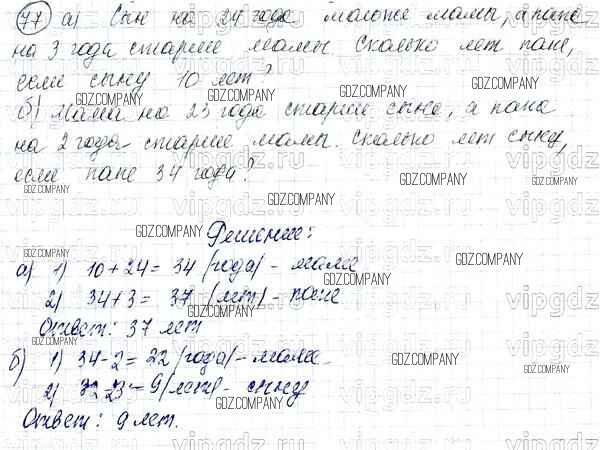 77 а) Сын на 24 года моложе мамы, а папа
на 3 года старше мамы. Сколько лет папе,
если сыну 10 лет?
б) Мама на 23 года старше сына, а папа
на 2 года старше мамы. Сколько лет сыну,
если папе 34 года?
Решение:
а) 1) 10 + 24 = 34 (года) - маме
2) 34 + 3 = 37 (лет) - папе
Ответ: 37 лет
б) 1) 34 - 2 = 32 (года) - маме
2) 32 - 23 = 9 (лет) - сыну
Ответ: 9 лет.
GDZ.COMPANY
vipgdz.ru